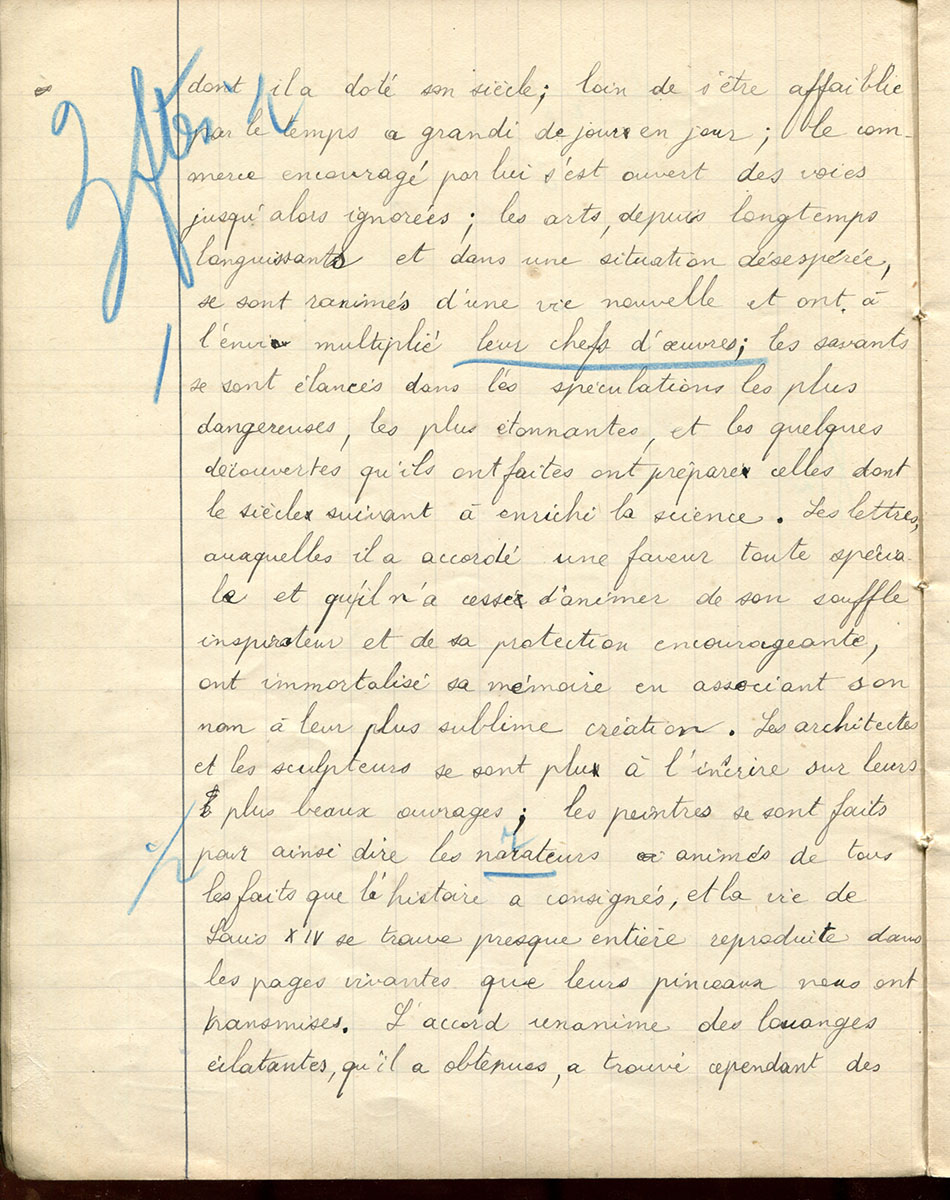 dont il a doté son siècle; loin de s'être affaiblie
par le temps a grandi de jour en jour; le com-
merce encouragé par lui s'est ouvert des voies
jusqu'alors ignorées; les arts, depuis longtemps
languissants et dans une situation désespérée,
se sont ranimés d'une vie nouvelle et ont à
l'envi multiplié leur chefs d'œuvres; les savants
se sont élancés dans les spéculations les plus
dangereuses, les plus étonnantes, et les quelques
découvertes qu'ils ont faites ont préparé celles dont
le siècle suivant à enrichi la science. Les lettres,
auxquelles il a accordé une faveur toute spécia-
le et qu'il n'a cessé d'animer de son souffle
inspirateur et de sa protection encourageante,
ont immortalisé sa mémoire en associant son
nom à leur plus sublime création. Les architectes
et les sculpteurs se sont plu à l'inscrire sur leurs
plus beaux ouvrages; les peintres se sont faits
pour ainsi dire les narateurs animés de tous
les faits que l'histoire a consignés, et la vie de
Louis XIV se trouve presque entière reproduite dans
les pages vivantes que leurs pinceaux nous ont
transmises. L'accord unanime des louanges
éclatantes, qu'il a obtenues, a trouvé cependant des